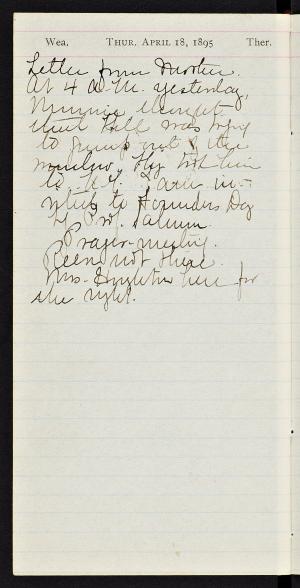 Wea. THUR. APRIL 18, 1895 Ther.
Letter from Mother.
At 4 A.M. yesterday,
Minnie thought
that was trying
to jump out of the
window. They took him
to N.Y. I am in-
vited to Founders Day
by Prof. Salmon.
Prayer-meeting.
not there.
Mrs. here for
the night.